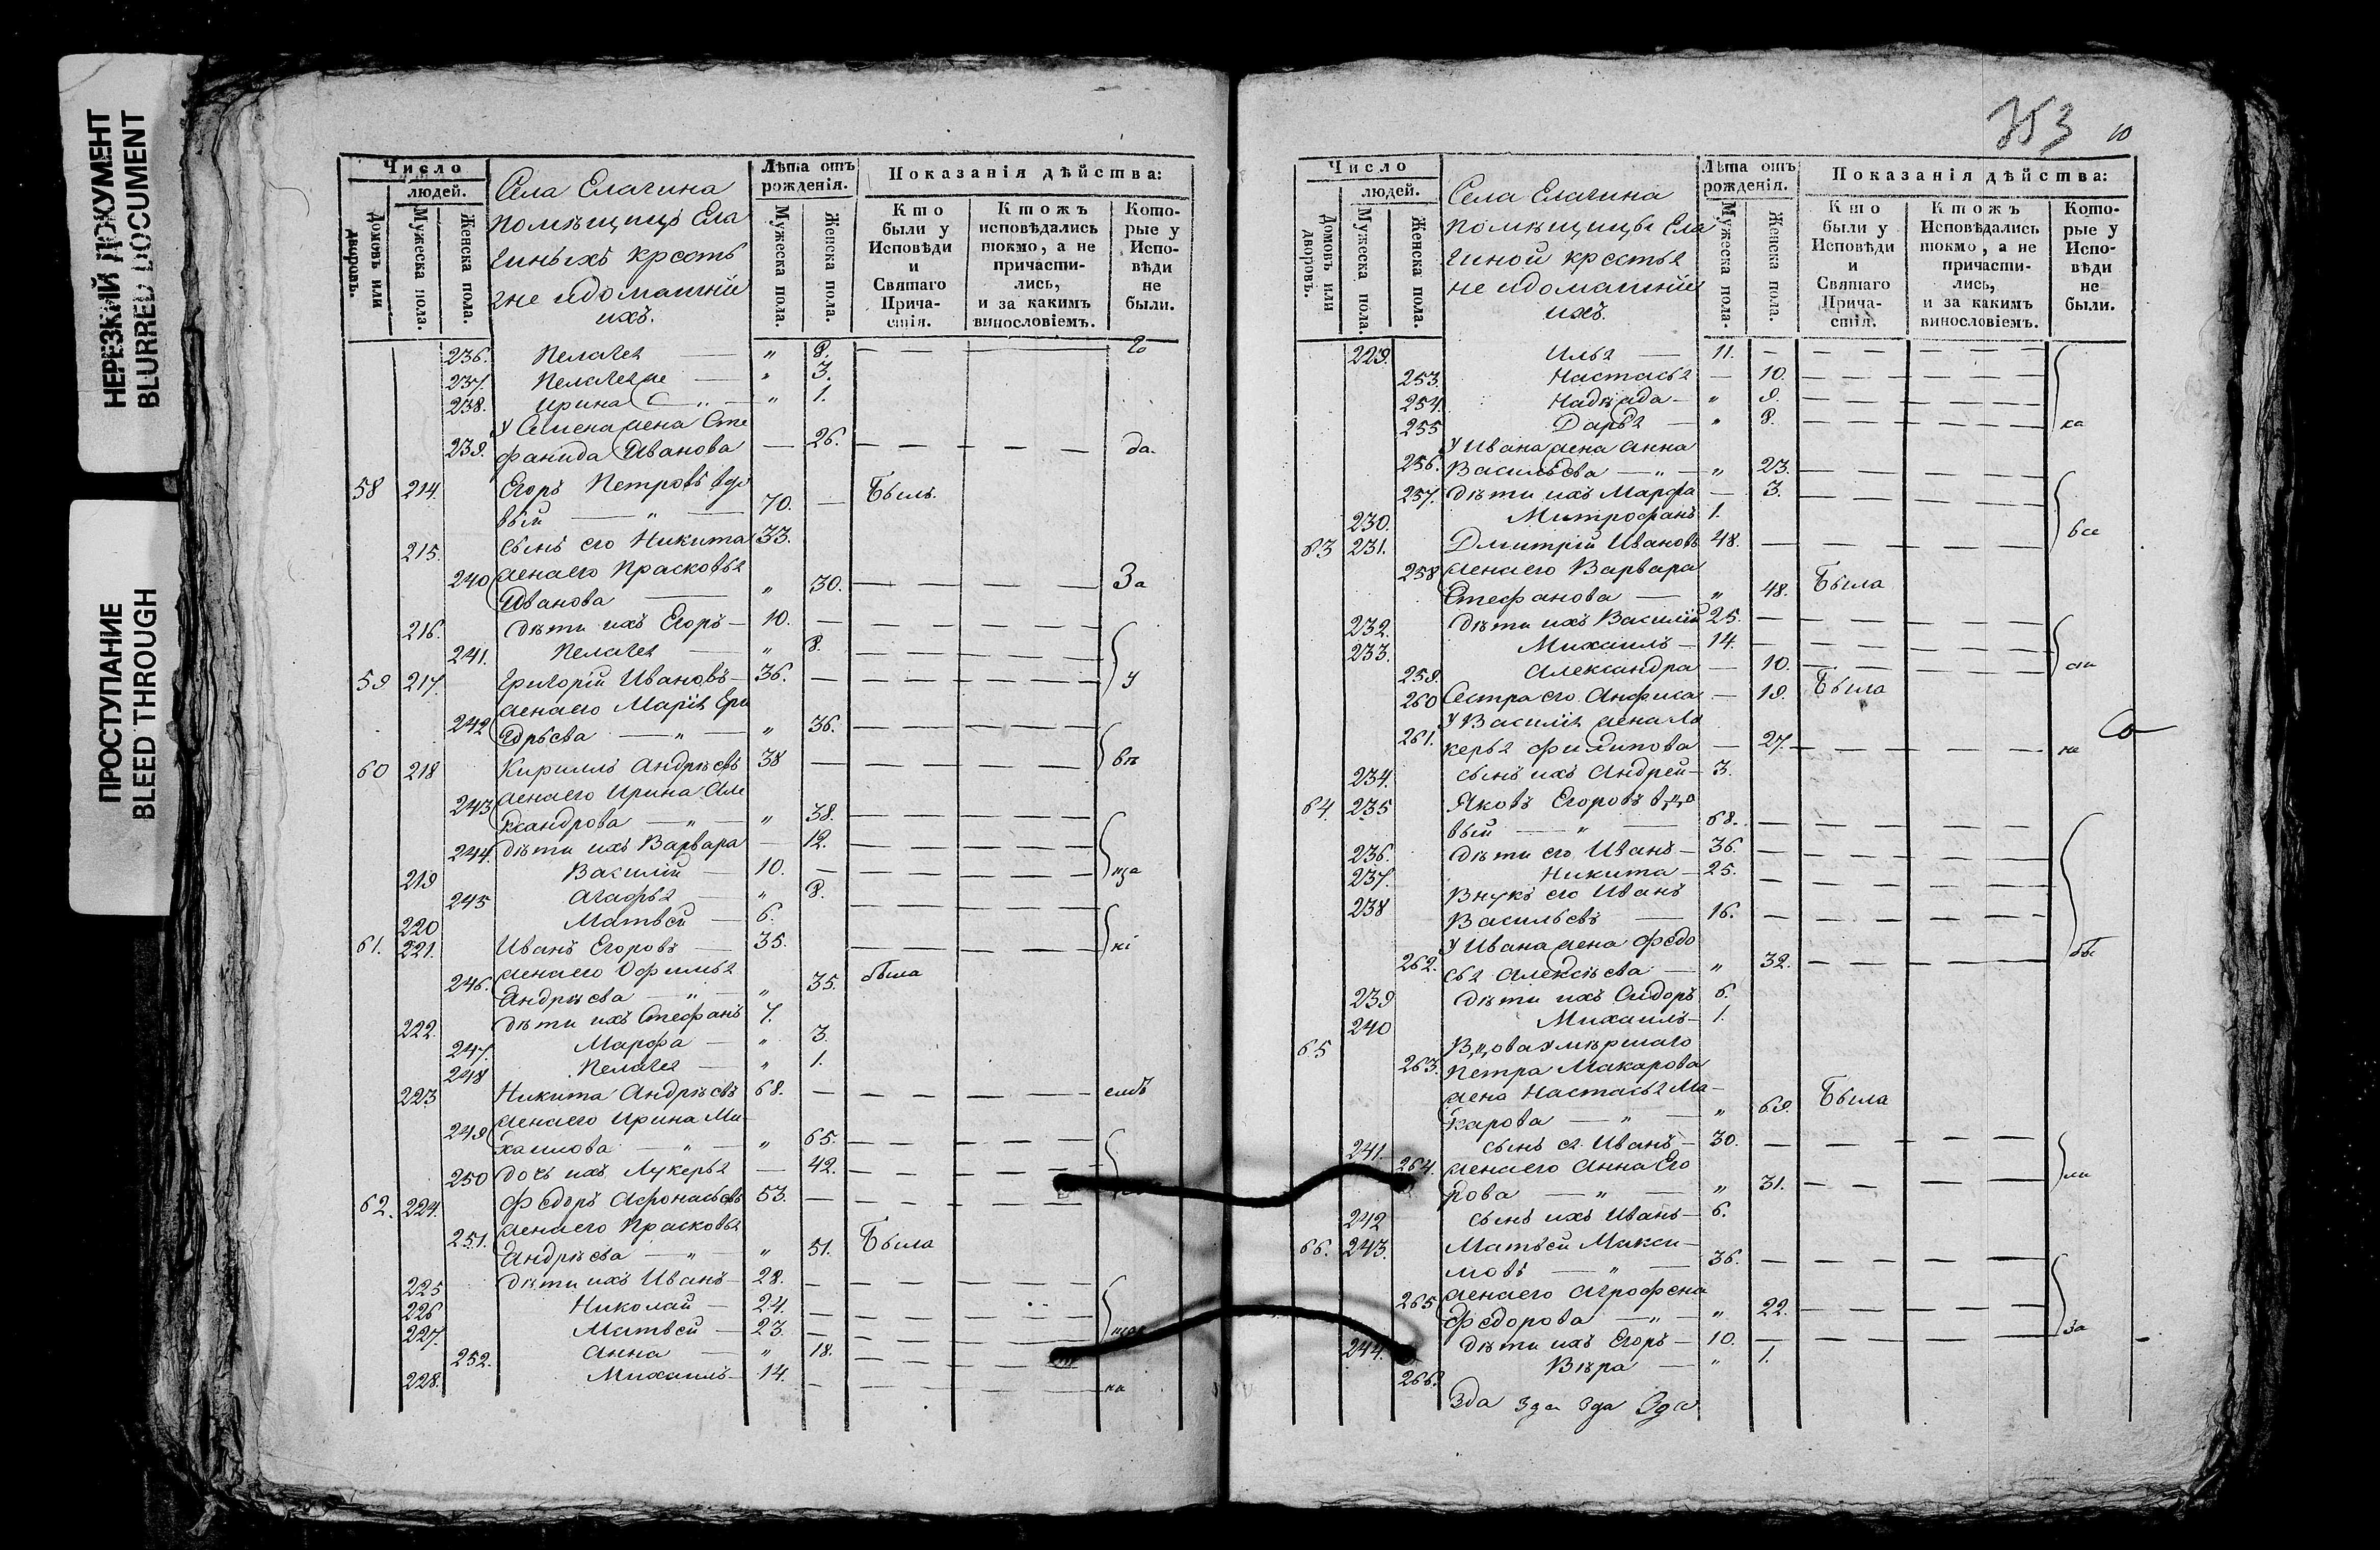 НЕРЕЗКИЙ ДОКУМЕНТ
BLURRED DOCUMENT
ПРОСТУПАНИЕ
BLEED THROUGH
Число
людей.
Домовъ или дворовъ.
Мужеска пола.
Женска пола.
Села Елагина
помѣщицъ Ела
гиныхъ кресть
яне и домашніи
ихъ.
Лѣта отъ рожденія.
Мужеска пола.
Женска пола.
Показанія дѣйства:
Кто были у Исповѣди и Святаго Прича- стія.
Ктожъ исповѣдались токмо, а не причасти- лись, и за какимъ винословіемъ.
Кото- рые у Испо- вѣди не были.
236. Пелагея — " 8. — — — —
237. Пелагея же — " 3.
238. Ирина — " — " 1.
У Семена жена Сте
239. фанида Иванова — 26. — — — — да.
58 214. Егоръ Петровъ вдо
вый — " — 70. — Былъ.
215. Сынъ его Никита 33.
240 жена его Прасковья
Иванова — " 30. — — — — За
216. дѣти ихъ Егоръ — 10. — — — — —
241. Пелагея — " 8. — — — —
59 217. Григорій Ивановъ — 36. — — — — — у
242 жена его Марія
— " — " 36. — — — —
60 218 Кириллъ Андрѣевъ 38 — — — — — вѣ
243 жена его Ирина Але
ксандрова — " — " 38. — — — —
244. дѣти ихъ Варвара — 12. — — — —
219 Василій — 10. — — — — —
245 Агафья — " 8. — — — —
220 Матвей — 6.
61. 221. Иванъ Егоровъ — 35. — — — — кі
246. жена его Офимья
Андрѣева — " — " 35. была
222. дѣти ихъ Стефанъ 7.
247. Марфа — " 3.
248 Пелагея — " 1.
223 Никита Андрѣевъ 68. — — — — —
249 жена его Ирина Ми-
хаилова — " — " 65. — — — —
250 дочь ихъ Лукерья — 42. — — — —
62. 224. Федоръ Афонасьевъ 53. — — — — —
251. жена его Прасковья
Андрѣева — " — " 51. Была
225 дѣти ихъ Иванъ — 28. — — — — —
226 Николай — 24. —
227. Матвей — 23. — — — — —
252. Анна — " 18. — — — —
228. Михаилъ — 14. — — — — — ка
753 10
Число
людей.
Домовъ или дворовъ.
Мужеска пола.
Женска пола.
Села Елагина
помѣщицы Ела
гиной крестья
не и домашніи
ихъ.
Лѣта отъ рожденія.
Мужеска пола.
Женска пола.
Показанія дѣйства:
Кто были у Исповѣди и Святаго Прича- стія.
Ктожъ Исповѣдались токмо, а не причасти- лись, и за какимъ винословіемъ.
Кото- рые у Испо- вѣди не были.
229. Илья — 11. — — — — —
253. Настасья — 10. — — — —
254. Надѣжда — " 9. — — — —
255 Дарья — " 8. — — — — ка
У Ивана жена Анна
256. Васильева — " — " 23. — — — —
257. дѣти ихъ Марфа — 3. — — — —
230. Митрофанъ 1.
63 231. Дмитрій Ивановъ 48. — — — — — все
258 жена его Варвара
Стефанова — " 48. Была
232. дѣти ихъ Василій 25. — — — — —
233. Михаилъ — 14. — — — — —
259. Александра — 10. — — — —
260 Сестра его Анфиса — 19. Была
У Василія жена Лу
261. керья Филипова — 27. — — — — на
234. сынъ ихъ Андрей — 3.
64. 235 Яковъ Егоровъ вдо
вый — " — 68. — — — — —
236. дѣти его Иванъ — 36. — — — — —
237. Никита — 25. — — — — —
238 Внукъ его Иванъ
Васильевъ — 16. — — — — —
У Ивана жена Федо
262. сья Алексѣева — " 32. — — — —
239 дѣти ихъ Сидоръ 6.
240 Михаилъ — 1.
65 Вдова умѣршаго
263. Петра Макарова
жена Настасья Ма-
карова — " — " 69. Была
241. сынъ ея Иванъ — 30. — — — — —
264. жена его Анна Его
рова — " — " 31. — — — — ли
242 сынъ ихъ Иванъ — 6.
66. 243. Матвей Макси-
мовъ — " — 36. — — — — —
265 жена его Агрофена
Федорова — " — " 22. — — — —
244. дѣти ихъ Егоръ — 10. — — — — — За
266. Вѣра — " 1.
Зда Зда Зда Зда